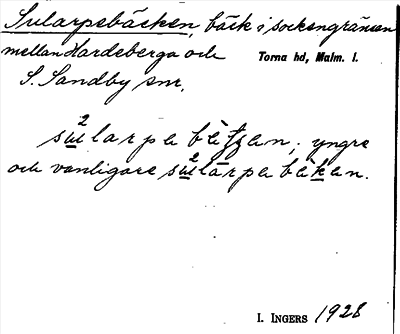 Sularpebäcken, bäck i sockengränsen
mellan Hardeberga och Torna hd, Malm. l.
S. Sandby snr.
sularpa bätjan; yngre
och vanligare sularpa bäkan.
I. INGERS 1928